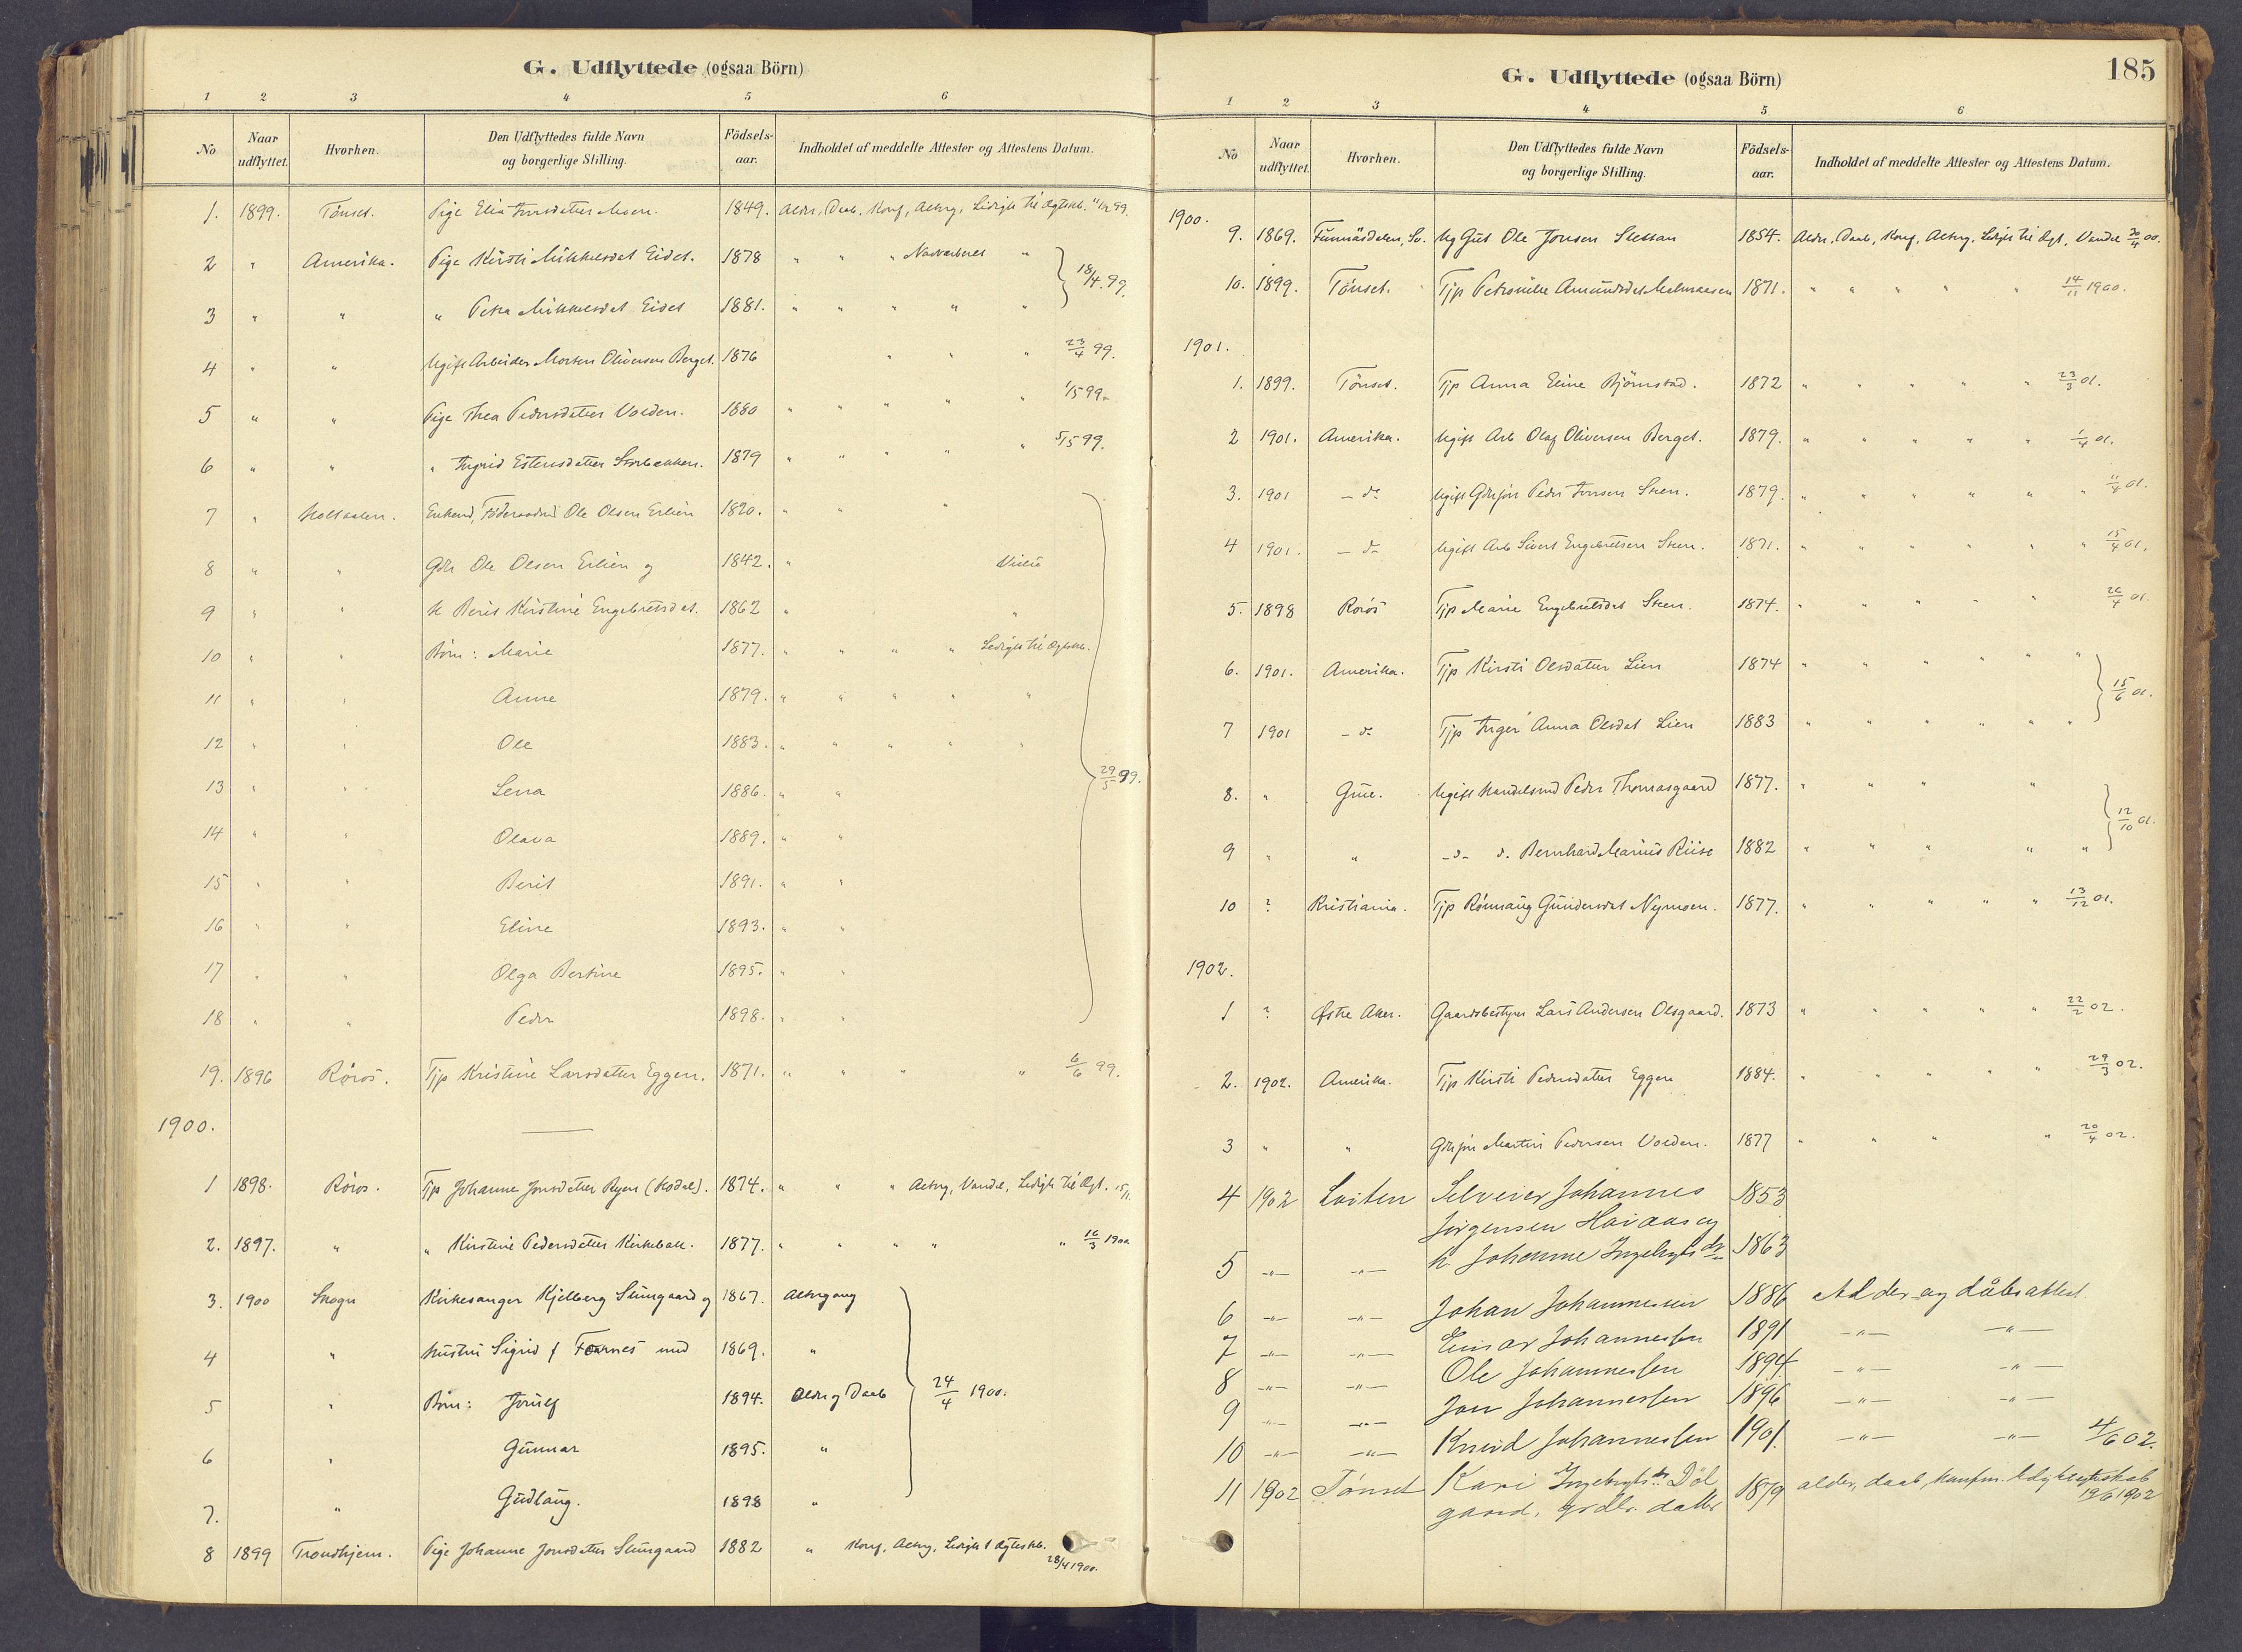 G. Udflyttede (ogsaa Börn)
1 2 3 4 5 6
No Naar udflyttet. Hvorhen. Den Udflyttedes fulde Navn og borgerlige Stilling. Födsels-aar. Indholdet af meddelte Attester og Attestens Datum.
1. 1899. Tönset. Pige Elia 1849. Alder, Daab, Konf, Altrg, Ledigh til Ægtesk.
2 " Amerika. Pige Kirsti Mikkelsdat Eidet. 1878 " " " Navnebevis "
3 " " " Petra Mikkelsdat Eidet 1881. " " " " " 18/4.99.
4 " " Ugift Arbeider Morten Oliversen Berget. 1876 " " " 23/4 99.
5 " " Pige Thea Pedersdatter Volden. 1880 " " " " " 1/5 99.
6 " " " Ingrid Estensdatter Storbekken. 1879 " " " " " 5/5 99.
7 " Holtaalen. Enkemd, Föderaadmd Ole Olsen Erlien 1820. " " "
8 " " Gdr Ole Olsen Erlien og 1842. " Viede
9 " " H Berit Kirstine Engebretsdat. 1862 " "
10 " " Börn: Marie 1877. " " " " Ledigh til Ægtesk.
11 " " Anne 1879. " " " " "
12 " " Ole 1883. " " " " "
13 " " Lena 1886. " " 29/5 99.
14 " " Olava 1889. " "
15 " " Berit 1891. " "
16 " " Eline 1893. " "
17 " " Olga Bertine 1895. " "
18 " " Peder 1898. " "
19. 1896 Röros. Tjp Kristine Larsdatter Eggen. 1871. " " " " 6/6 99.
1900.
1 1898. Röros. Tjp Johanne Jonsdatter Ryen (Kodal). 1874. " " " Altrg, Vandel, Ledigh til Ægt. 15/1.
2. 1897. " " Kirstine Pedersdatter Kirkebak. 1877. " " " " " 16/3 1900
3. 1900 Skogn Kirkesanger Kjelberg Sliungaard og 1867. Altergang
4 " Hustru Sigrid f Fornes med 1869. "
5 " Börn: 1894. Alder og Daab 24/4 1900.
6 " Gunnar 1895. "
7. " Gudlaug. 1898 "
8 1899 Trondhjem. Pige Johanne Jonsdatter Sliungaard 1882 " Konf, Altrg, Ledigh t Ægtesk. 28/4 1900.
185
G. Udflyttede (ogsaa Börn)
1 2 3 4 5 6
No Naar udflyttet. Hvorhen. Den Udflyttedes fulde Navn og borgerlige Stilling. Födsels-aar. Indholdet af meddelte Attester og Attestens Datum.
1900.
9. 1869. Funnäsdalen, Sv. Ug Gut Ole Jonsen Slettan 1854. Alder, Daab, Konf, Altrg, Ledigh til Ægt, Vandel 00.
10. 1899. Tönset. Tjp Petronille Amundsdat 1871. " " " " " 14/11 1900.
1901.
1. 1899. Tönset. Tjp Anna Eline Björnstad. 1872 " " " " " 23/3 01.
2 1901. Amerika. Ugift Arb Olaf Oliversen Berget. 1879. " " " " " 1/4 01.
3. 1901 - do Ugift Gdrsön Peder Steen. 1879. " " " " " " 11/4 01.
4 1901. - do Ugift Arb Sivert Engebretsen Steen. 1871. " " " " " " 15/4 01.
5. 1898 Rörös Tjp Marie Engebretsdat Steen. 1874. " " " " " 26/4 01.
6. 1901. Amerika. Tjp Kirsti Olsdatter Lien 1874 " " " " " "
7 1901 - do Tjp Inger Anna Olsdat Lien 1883 " " " " " " 15/6 01.
8. " Grue. Ugift Handelsmd Peder Thomasgaard 1877. " " " "
9 " " -d- d. Bernhard Marius Riise 1882 " " " " " 12/10 01.
10 ? Kristiania. Tjp Rönnaug Gundersdat Nymoen. 1877. " " " " " 13/12 01.
1902.
1 ? Östre Aker. Gaardsbestyrer Lars Andersen Olsgaard. 1873 " " " " " 22/2 02.
2. 1902. Amerika. Tjp Kirsti Pedersdatter Eggen 1884. " " " " " 29/3 02.
3 " " Gdrsön Martin Pedersen Volden. 1877 " " " " 20/4 02.
4 1902 Löiten Selveier Johannes 1853
Jörgensen Havaas og
5 -"- -"- h. Johanne Ingebrigtsdr 1863
6 -"- -"- Johan Johannessen 1886 Alder og dåbsattest
7 -"- -"- Einar Johannessen 1891 -"- -"-
8 -"- -"- Ole Johannessen 1894 -"- -"-
9 -"- -"- Jon Johannessen 1896 -"- -"-
10 -"- -"- Knud Johannessen 1901. -"- -"- 4/6 02.
11 1902 Tönset Kari Ingebrigtsdr Döl 1879 alder, daab, konfm.
gaard, grdbr. datter 19/6 1902